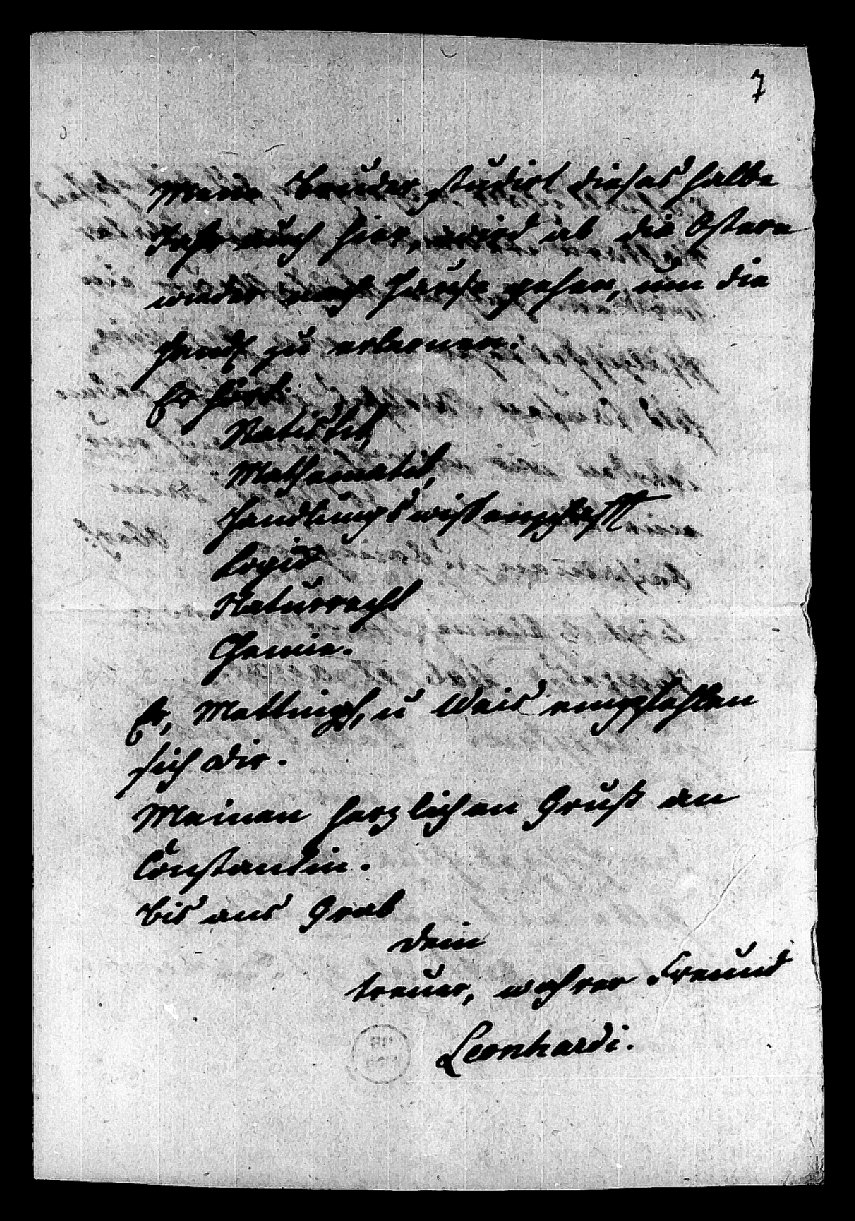 7
Mein Bruder studirt dieses halbe
Jahr auch hier, wird ab die Ostern
wieder nach Hause gehen, um die
zu erlernen.
Er hört
Statistik
Mathematik,
Handlungswissenschaft
Logik
Naturrecht
Chemie.
Er, Mettingh, u Weis empfehlen
sich dir.
Meinen herzlichen Gruß an
Constantin.
Bis ans Grab
dein
treuer, wahrer Freund
Leonhardi.